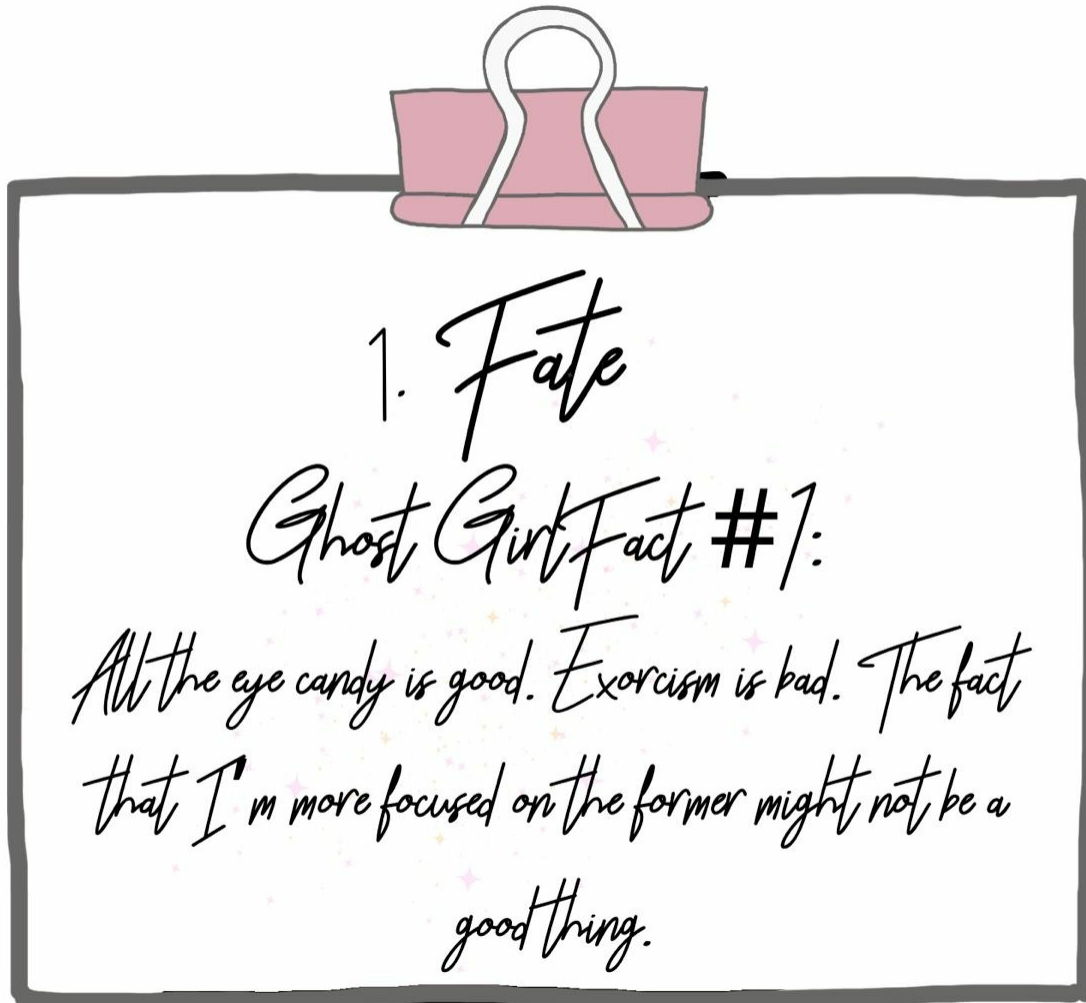 1. Fate
Ghost Girl Fact #1:
All the eye candy is good. Exorcism is bad. The fact
that I'm more focused on the former might not be a
good thing.